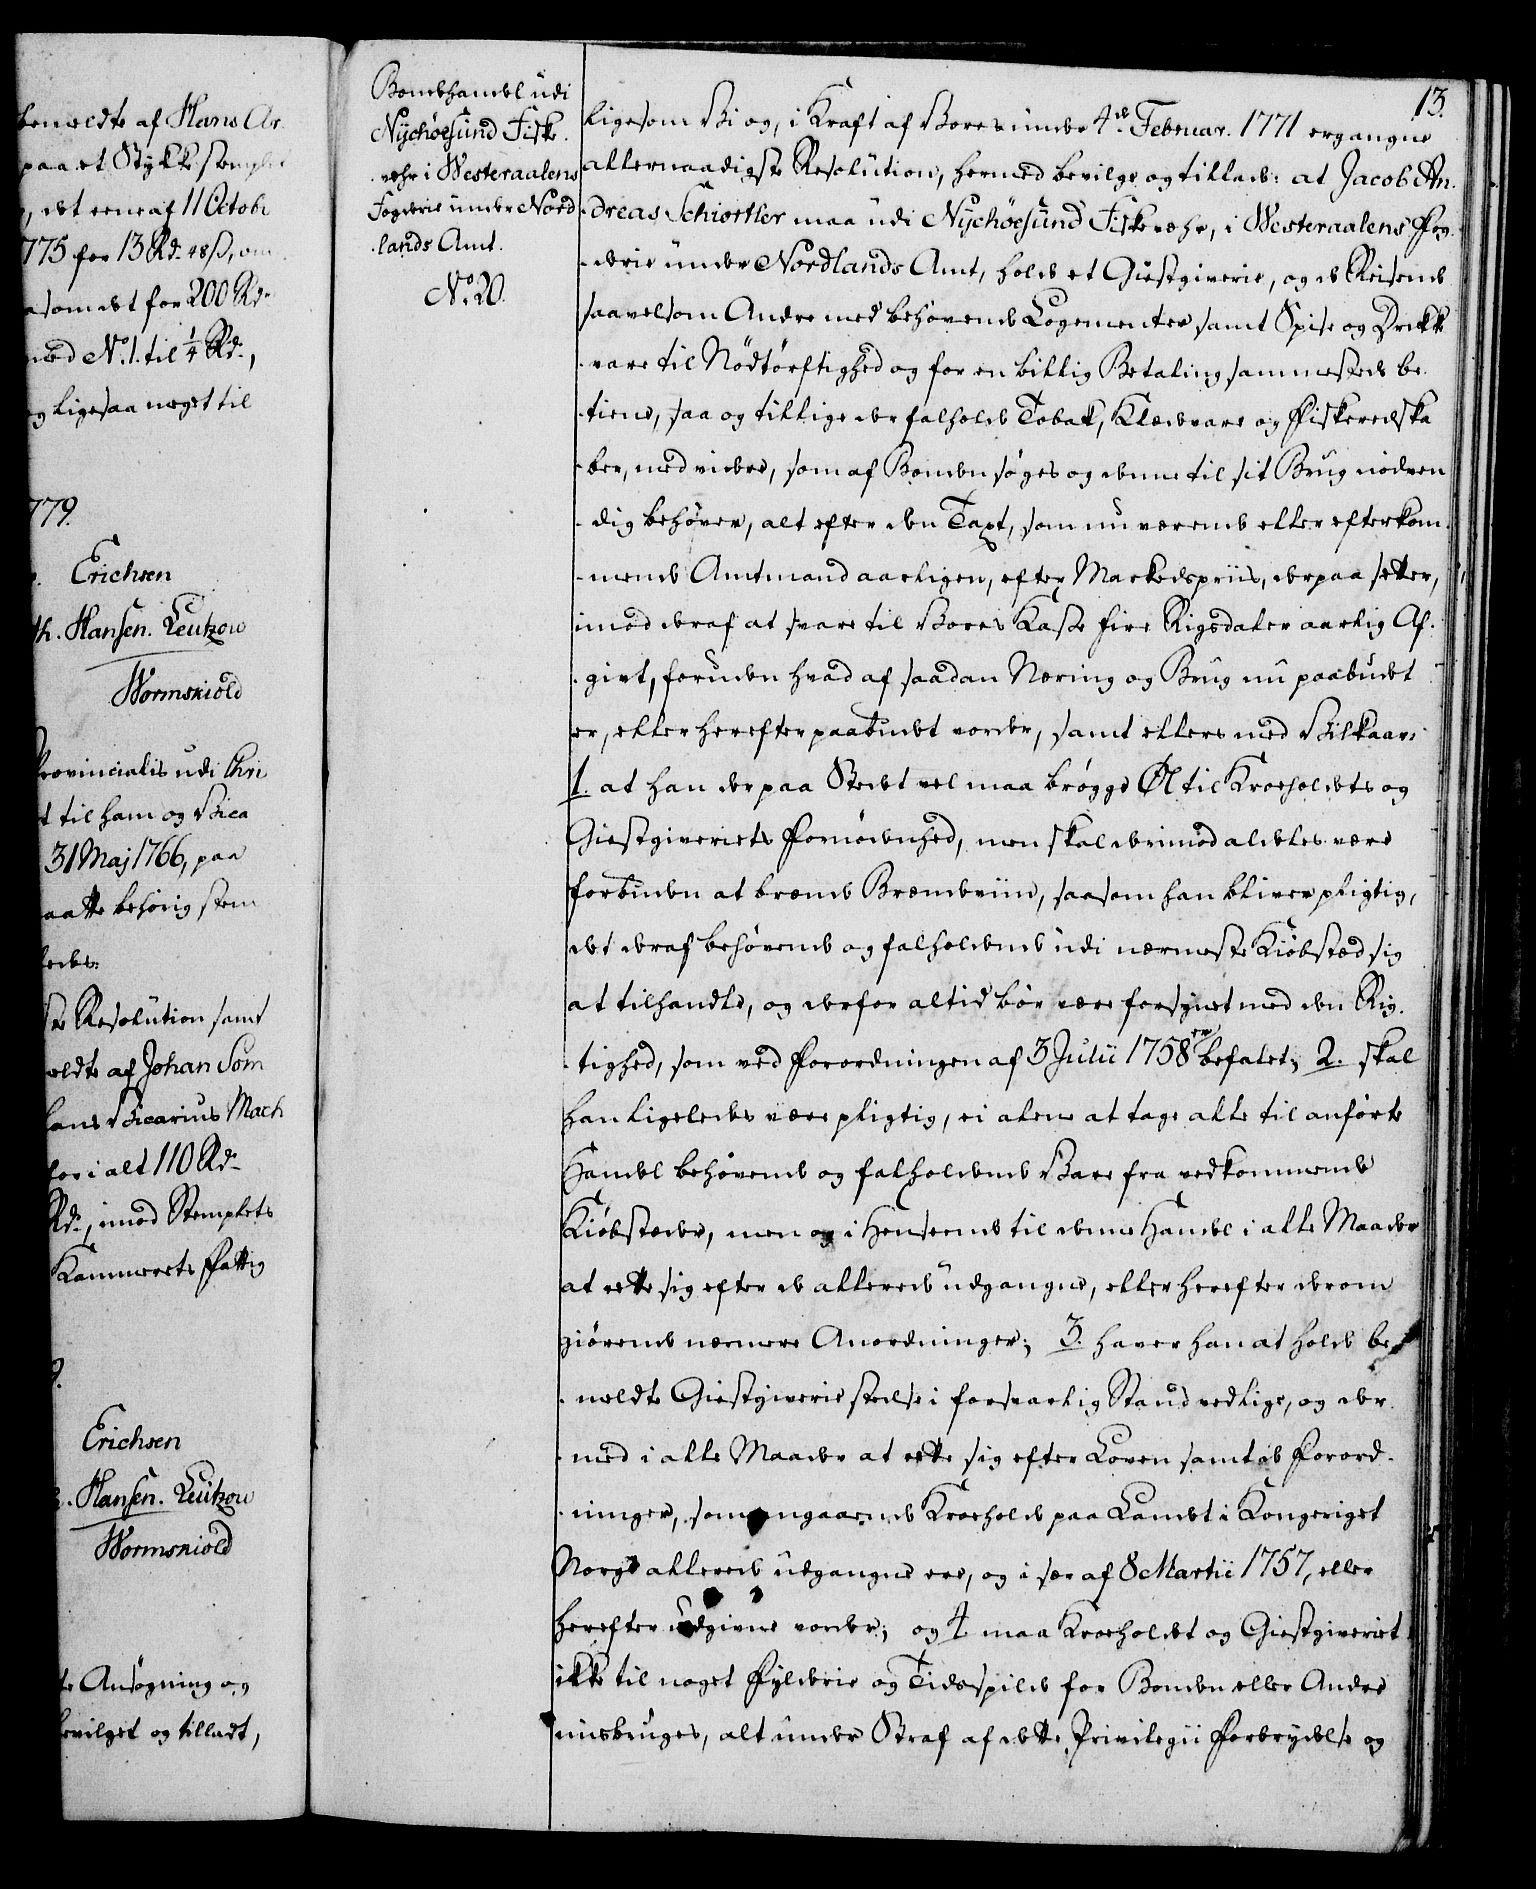 benældte af Hans Ar.
paa et Stykke stemplet
, det eene af 11 Octobr
775 for 13 Rd. 48 ß, om
asom det for 200 Rd.
med No. 1. til ¼ Rd.,
og ligesaa meget til
779.
Erichsen
th. Hansen. Leutzow
Wormskiold
Provincialis udi Chri
t til ham og Vica
31 Maj 1766, paa
aatte behörig stem
ledes:
ste Resolution samt
ældte af Johan Som
hans Vicarius Mach
for i alt 110 Rd.
Rd., imod Stemplets
Kammerets Fattig
9.
Erichsen
. Hansen. Leützow
Wormskiold
te Ansøgning og
bevilget og tilladt,
Bondehandel udi
Nÿchöesund Fiske-
-vehr i Westeraalens
Fogderie under Nord
-lands Amt.
No. 20.
13.
ligesom Vi og, i Kraft af Vores under 4de Februar. 1771 ergangne
allernaadigste Resolution, hermed bevilge og tillade: at Jacob An-
-dreas Schiertler maa udi Nÿchöesund Fiskevehr, i Westeraalens Fog-
-derie under Nordlands Amt, holde et Giestgiverie, og de Reisende
saavelsom Andre med behøvende Logementer samt Spise og Drikke
-vare til Nödtörftighed og for en billig Betaling sammesteds be-
-tiene, saa og tillige der falholde Tobak, Klædevare og Fiskeredska
-ber, med videre, som af Bonden söges og denne til sit Brug nödven
-dig behöver, alt efter den Taxt, som nu værende eller efterkom-
-mende Amtmand aarligen, efter Markedspriis, derpaa sætter,
imod deraf at svare til Vores Kasse fire Rigsdaler aarlig Af-
-givt, foruden hvad af saadan Næring og Brug nu paabudet
er, eller herefter paabudet vorder, samt ellers med Vilkaar:
1. at han der paa Stedet vel maa brögge Øl til Kroeholdets og
Giestgiveriets Fornödenhed, men skal derimod aldeles være
forbuden at brænde Brændeviin, saasom han bliver pligtig,
det deraf behövende og falholdende udi nærmeste Kiöbstæd sig
at tilhandle, og derfor altid bör være forsynet med den Rig-
-tighed, som ved Forordningen af 3 Julii 1758 er befalet; 2. skal
han ligeledes være pligtig, ei alene at tage alle til anförte
Handel behövende og falholdende Vare fra vedkommende
Kiöbstæder, men og i Henseende til denne Handel i alle Maader
at rette sig efter de allerede udgangne, eller herefter derom
giörende nærmere Anordninger; 3. haver han at holde be-
-meldte Giestgiverie stedse i forsvarlig Stand vedlige, og der-
-med i alle Maader at rette sig efter Loven samt de Forord-
-ninger, som angaaende Kroehold paa Landet i Kongeriget
Norge allerede udgangne ere, og i sær af 8 Martii 1757, eller
herefter udgivne vorder; og 4 maa Kroeholdet og Giestgiveriet
ikke til noget Fylderie og Tidsspilde for Bonden eller Andre
misbruges, alt under Straf af dette Privilegii Forbrydelse og